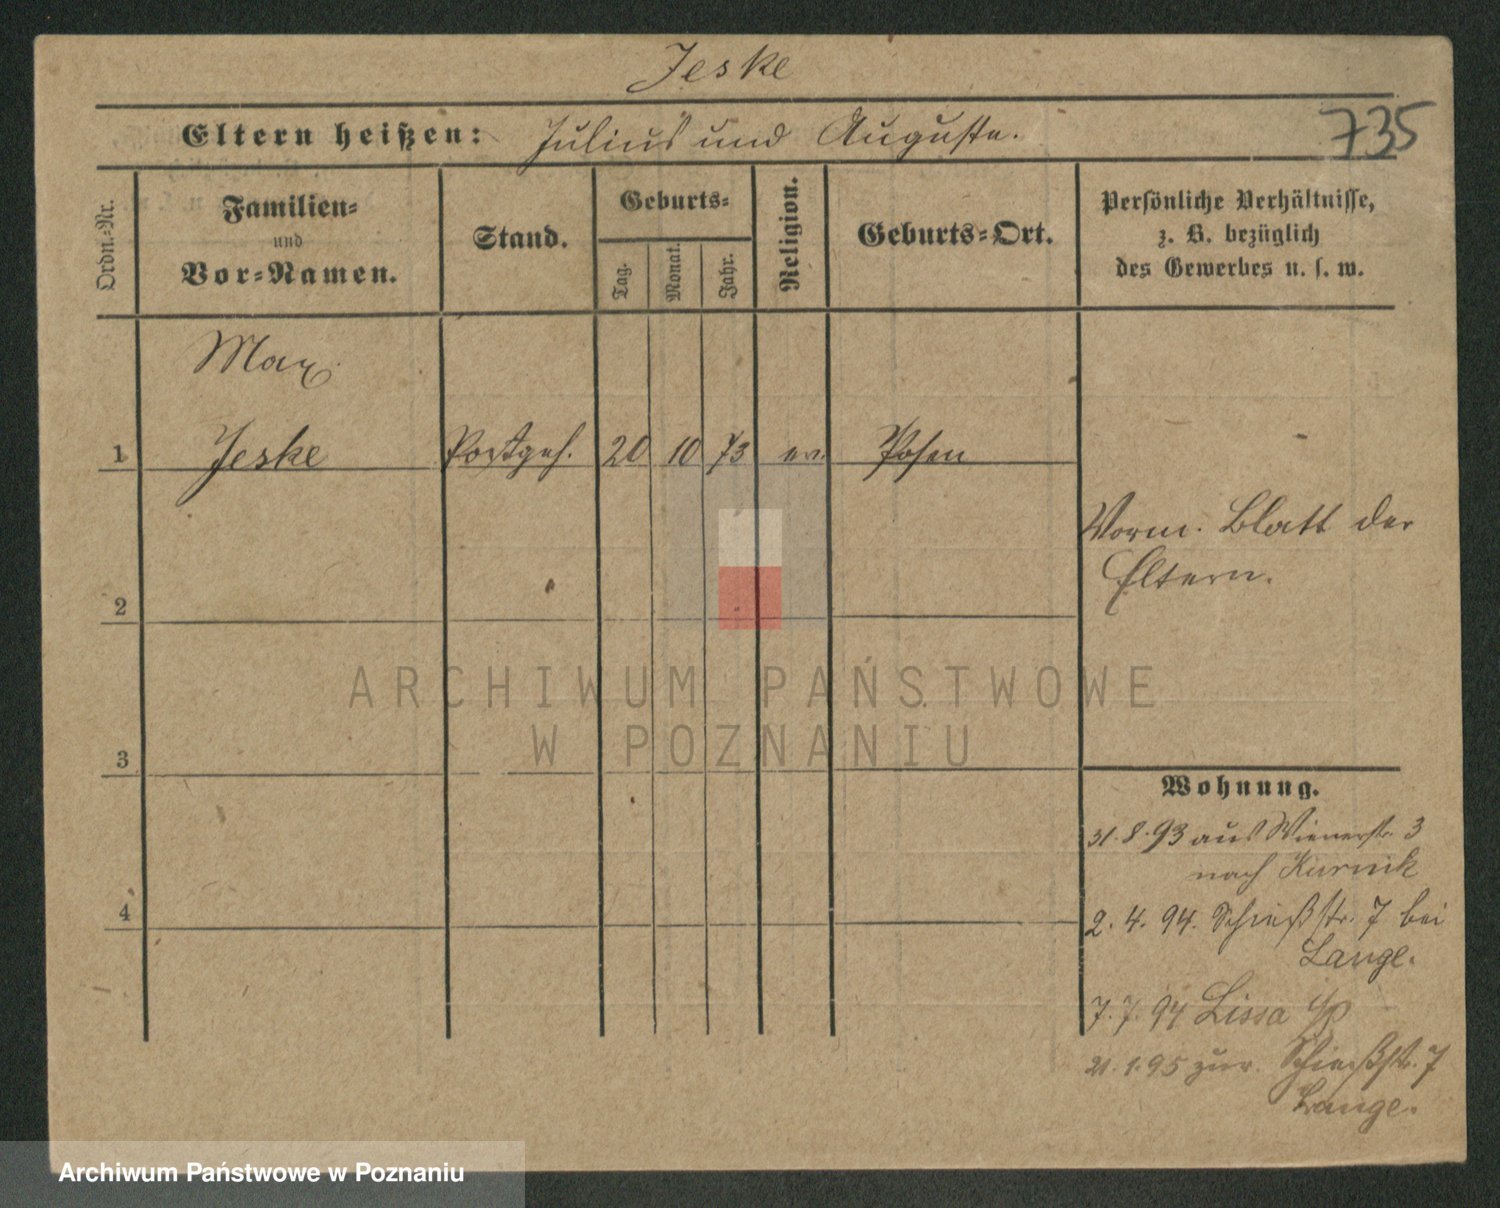 Jeske
Eltern heißen: Julius und Auguste.
735
Ordn.-Nr.
Familien-
und
Vor-Namen.
Stand.
Geburts-
Tag.
Monat.
Jahr.
Religion.
Geburts-Ort.
Persönliche Verhältnisse,
z. B. bezüglich
des Gewerbes u. s. w.
Max
1 Jeske Postgeh. 20 10 73 ev. Posen
Vorm. Blatt der
Eltern.
2
ARCHIWUM PAŃSTWOWE
W POZNANIU
3
Wohnung.
31.8.93 aus Wienerstr. 3
nach Kurnik
4
2.4.94. Schießstr. 7 bei
Lange.
7.7.94 Lissa i/P
21.1.95 zur. Schießstr. 7
Lange.
Archiwum Państwowe w Poznaniu